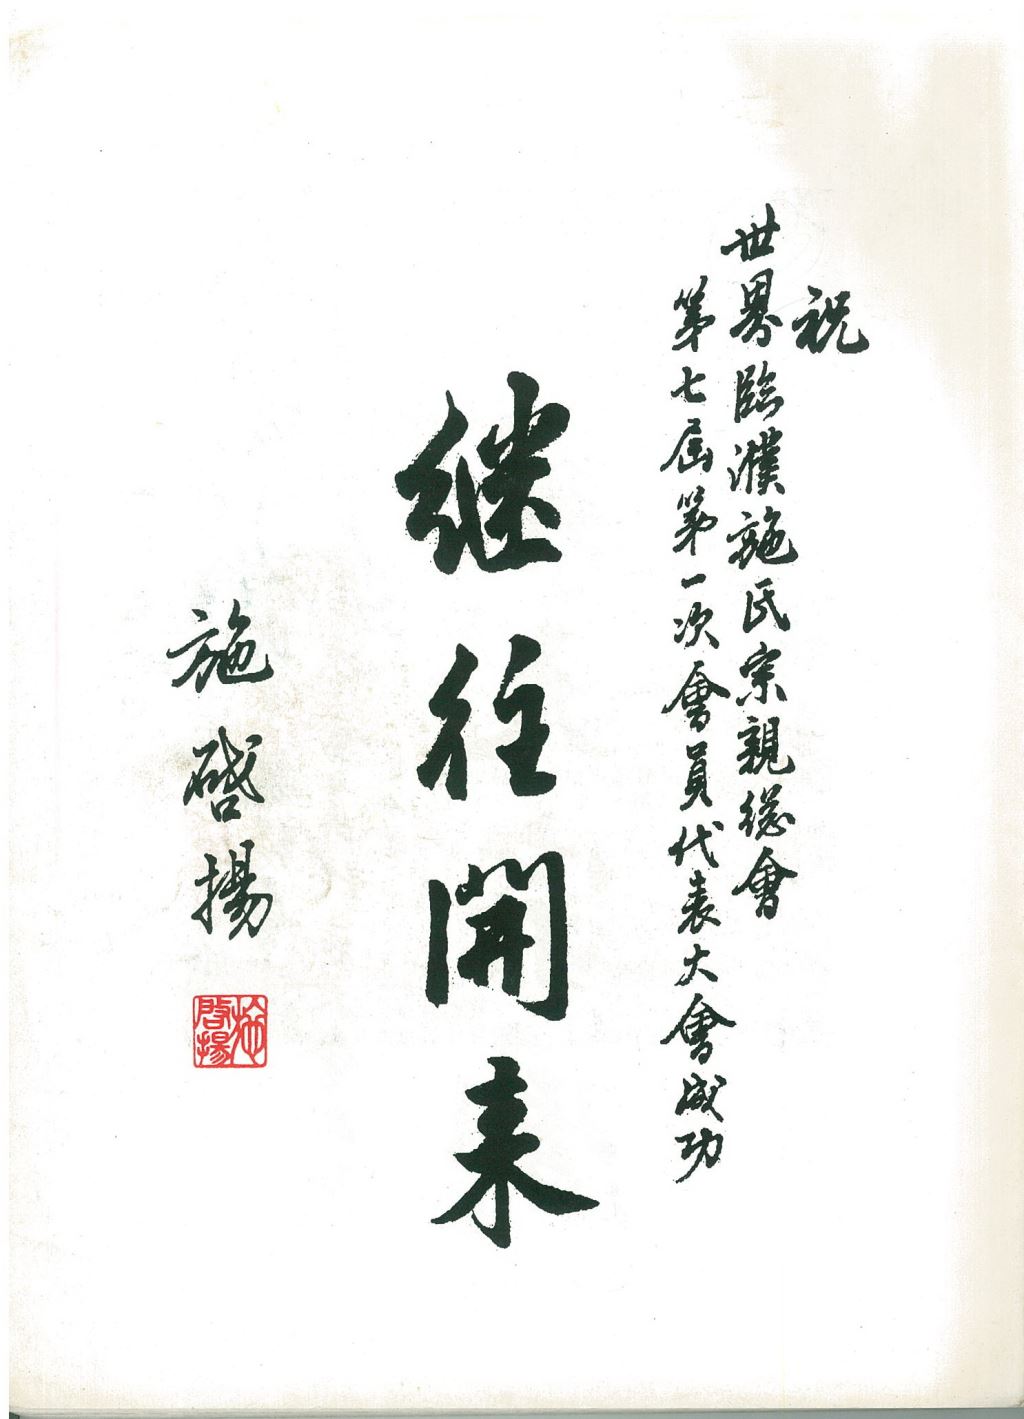 祝
世界臨濮施氏宗親總會
第七屆第一次會員代表大會成功
継往開来
施啓揚
施啓揚